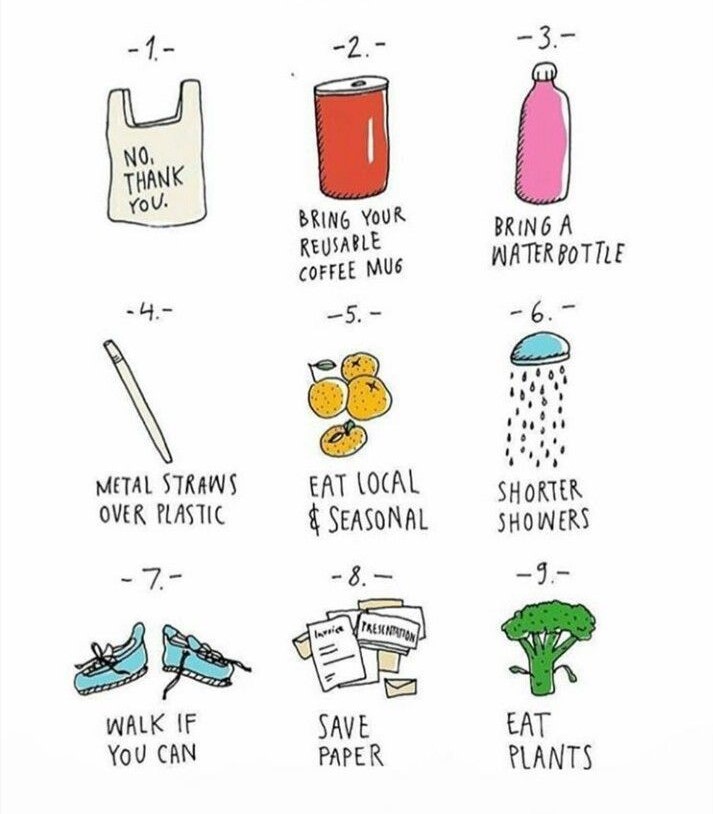 -1.-
NO,
THANK
YOU.
-2.-
BRING YOUR
REUSABLE
COFFEE MUG
-3.-
BRING A
WATER BOTTLE
-4.-
METAL STRAWS
OVER PLASTIC
-5.-
EAT LOCAL
& SEASONAL
-6.-
SHORTER
SHOWERS
-7.-
WALK IF
YOU CAN
-8.-
Invoice
PRESENTATION
SAVE
PAPER
-9.-
EAT
PLANTS